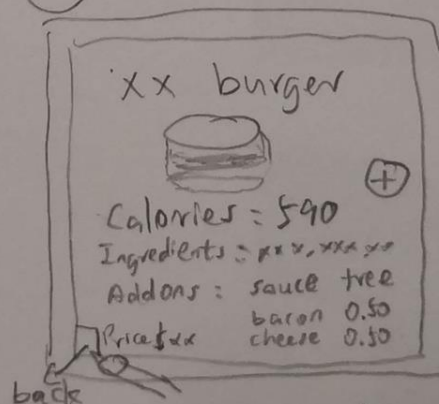 xx burger
+
Calories = 590
Ingredients = xxx, xxx, xx
Addons : sauce free
bacon 0.50
Price $xx cheese 0.50
back